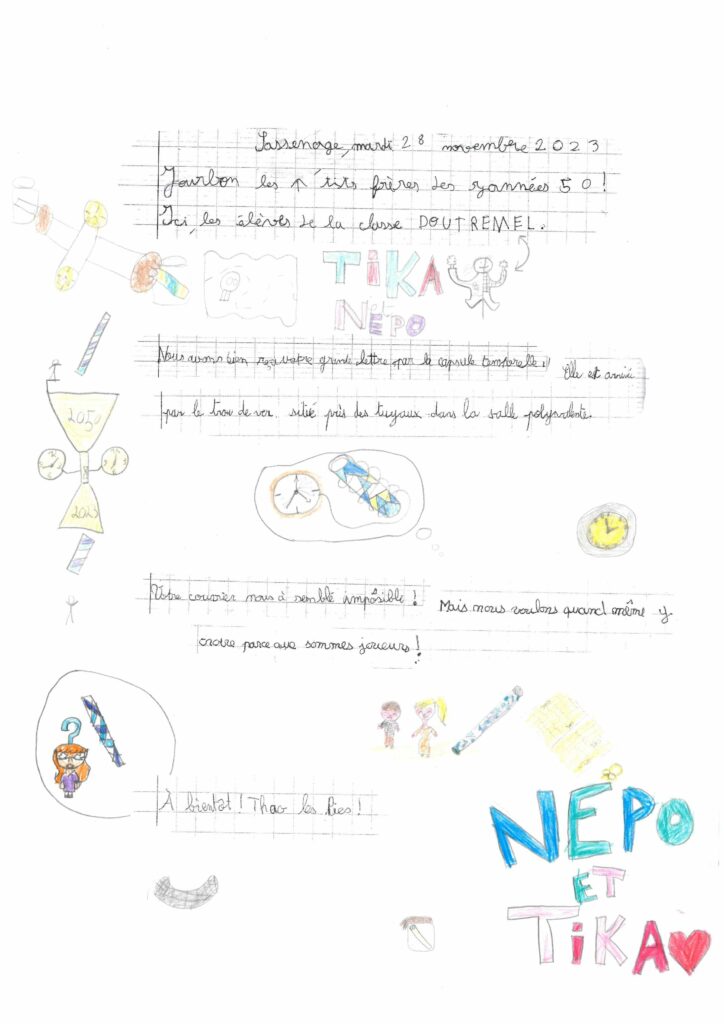 Sassenage, mardi 28 novembre 2023
Jourbon les ↑ 'tits frères des zannées 50 !
Ici, les élèves de la classe DOUTREMEL.
TiKA
NÉPO
Nous avons bien reçu votre grande lettre par la capsule temporelle !! Elle est arrivée
par le trou de ver, situé près des tuyaux dans la salle polyvalente.
2050
2023
Votre courrier nous à semblé impossible ! Mais nous voulons quand même y
croire parce que sommes joueurs !
?
À bientôt ! Thao les Pies !
NÉPO
ET
TiKA